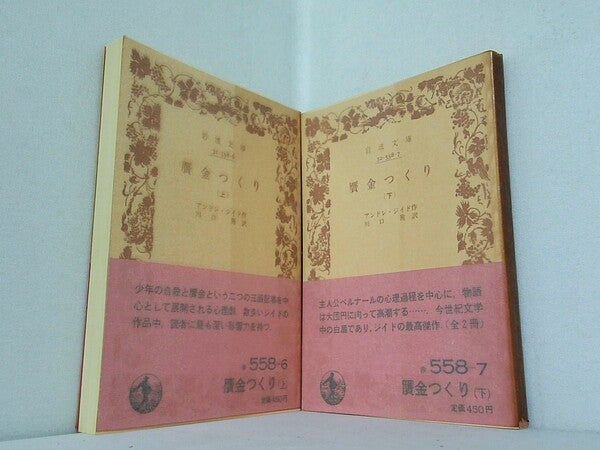 岩波文庫
32-558-6
贋金つくり
(上)
アンドレ・ジイド作
川口 篤訳
少年の自殺と贋金という二つの三面記事を中
心として展開される心理劇 数多いジイドの
作品中、読者に最も深い影響力を持つ。
赤 558-6
贋金つくり(上)
定価450円
岩波文庫
32-558-7
贋金つくり
(下)
アンドレ・ジイド作
川口 篤訳
主人公ベルナールの心理過程を中心に、物語
は大団円に向って高潮する……。今世紀文学
中の白眉であり、ジイドの最高傑作(全2冊)
赤 558-7
贋金つくり(下)
定価450円